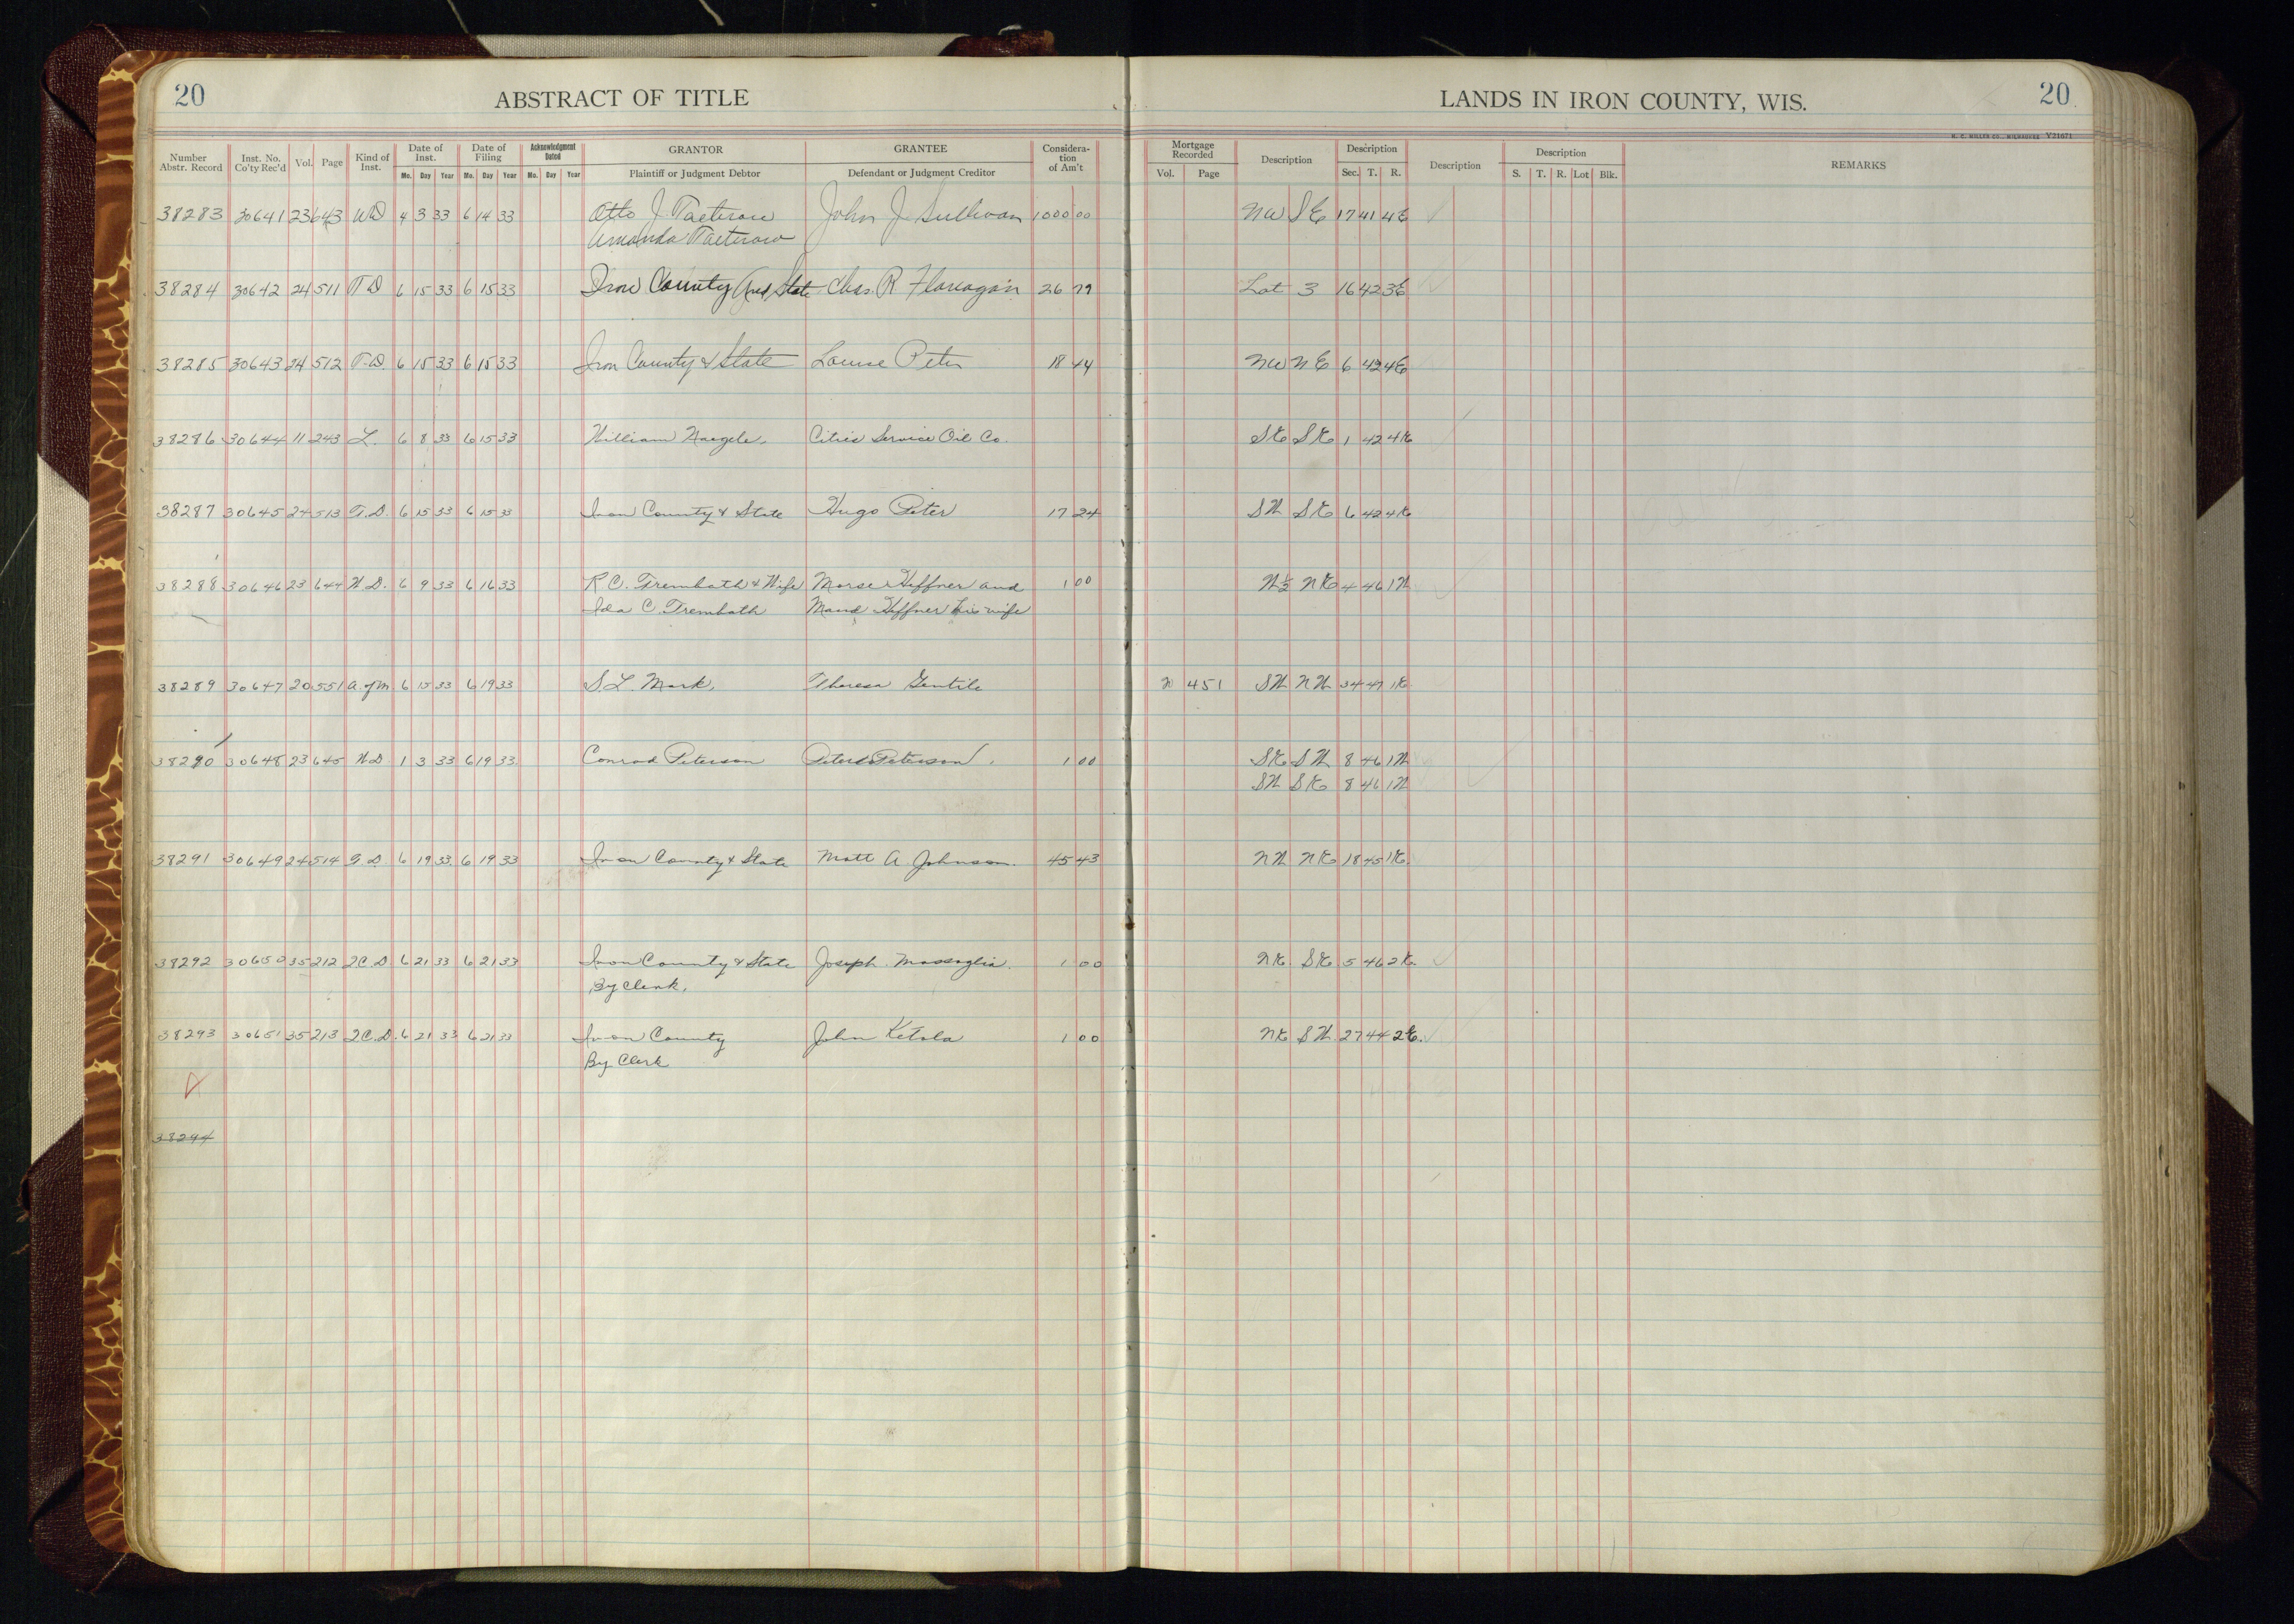 20 ABSTRACT OF TITLE LANDS IN IRON COUNTY, WIS. 20
H. C. MILLER CO., MILWAUKEE V21671
Number Abstr. Record Inst. No. Co'ty Rec'd Vol. Page Kind of Inst. Date of Inst. Mo. Day Year Date of Filing Mo. Day Year Acknowledgment Dated Mo. Day Year GRANTOR Plaintiff or Judgment Debtor GRANTEE Defendant or Judgment Creditor Consideration of Am't Mortgage Recorded Vol. Page Description Description Sec. T. R. Description Description S. T. R. Lot Blk. REMARKS
38283 30641 23 643 WD 4 3 33 6 14 33 Otto J. John J. Sullivan 1000 00 NW SE 17 41 4E
Amanda
38284 30642 24 511 TD 6 15 33 6 15 33 Iron County And State Chas. R Flanagan 26 79 Lot 3 16 42 3E
38285 30643 24 512 T.D. 6 15 33 6 15 33 Iron County & State Louise Peter 18 44 NW NE 6 42 4E
38286 30644 11 243 L. 6 8 33 6 15 33 William Naegele. Cities Service Oil Co. SE SE 1 42 4E
38287 30645 24 513 T.D. 6 15 33 6 15 33 Iron County & State Hugo Peter 17 24 SW SE 6 42 4E
38288 30646 23 644 W.D. 6 9 33 6 16 33 R C. Trembath & Wife Morse Heffner and 1 00 W½ NE 4 46 1W
Ida C. Trembath Maud Heffner his wife
38289 30647 20 551 A. of M 6 15 33 6 19 33 S L. Mark, Theresa Gentile 451 SW NW 34 47 1E
38290 30648 23 645 W.D. 1 3 33 6 19 33. Conrad Peterson Peter Peterson. 1 00 SE SW 8 46 1W
SW SE 8 46 1W
38291 30649 24 514 T.D. 6 19 33. 6 19 33 Iron County & State Matt A. Johnson. 45 43 NW NE 18 45 1E.
38292 30650 35 212 2C.D 6 21 33 6 21 33 Iron County & State Joseph Massoglia. 1 00 NE SE 5 46 2E.
By Clerk.
38293 30651 35 213 2C.D. 6 21 33 6 21 33 Iron County John Ketola 1 00 NE SW. 27 44 2E.
By Clerk
38294